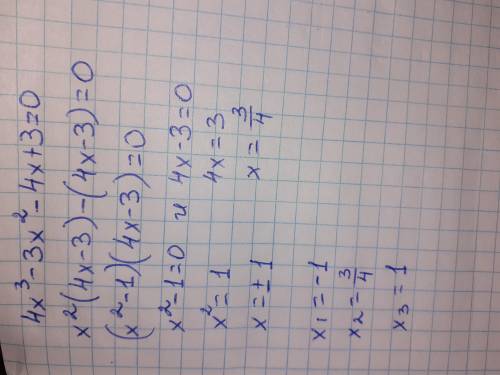 4x³-3x²-4x+3=0
x²(4x-3)-(4x-3)=0
(x²-1)(4x-3)=0
x²-1=0 и 4x-3=0
x²=1 4x=3
x=±1 x=3/4
x₁=-1
x₂=3/4
x₃=1